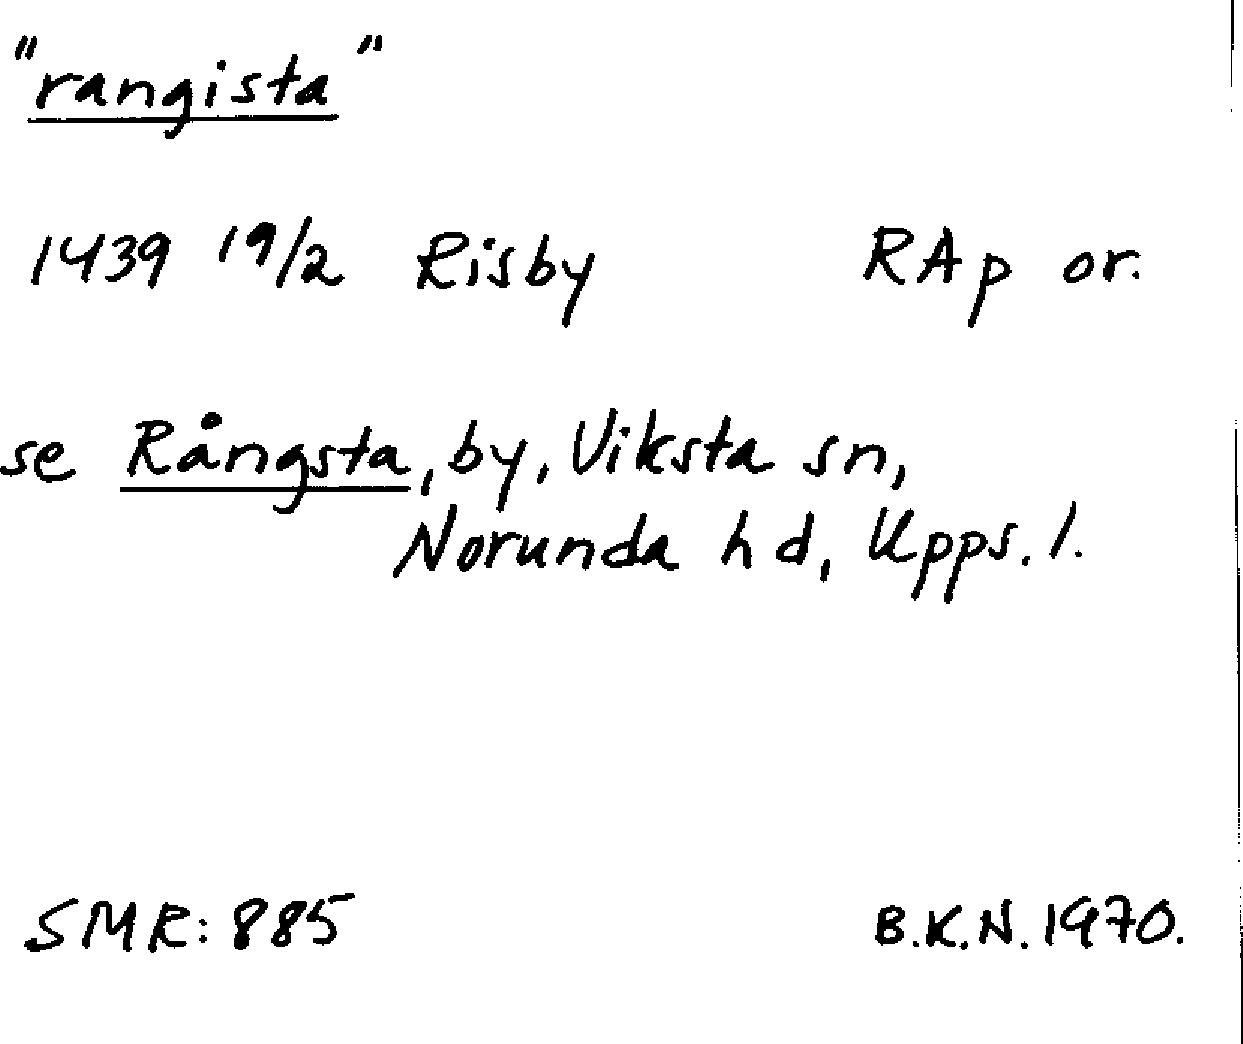 "rangista"
1439 19/2 Risby RAp or.
se Rångsta, by, Viksta sn,
Norunda hd, Upps. l.
SMR: 885 B.K.N. 1970.